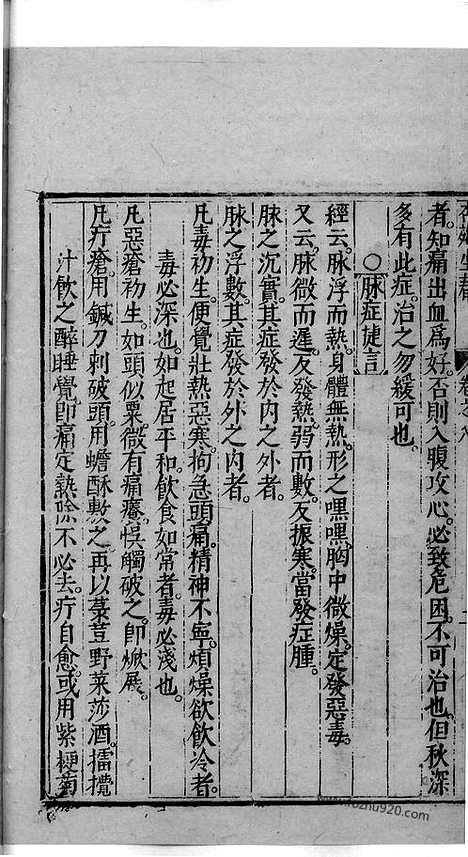 者知痛出血爲好否則入腹攻心必致危困不可治也但秋深
多有此症治之勿緩可也
○脉症捷言
經云脉浮而熱身體無熱形之嘿嘿胸中微燥定發惡毒
又云脉微而遲反發熱弱而數反振寒當發症腫
脉之沉實其症發於内之外者
脉之浮數其症發於外之内者
凡毒初生便覺壯熱惡寒拘急頭痛精神不寧煩燥欲飲冷者
毒必深也如起居平和飲食如常者毒必淺也
凡惡瘡初生如頭似粟微有痛癢悞觸破之即焮展
凡疔瘡用鍼刀刺破頭用蟾酥敷之再以蒙荳野菜莎酒擂攪
汁飲之醉睡覺即痛定熱除不必去疔自愈或用紫梗菊